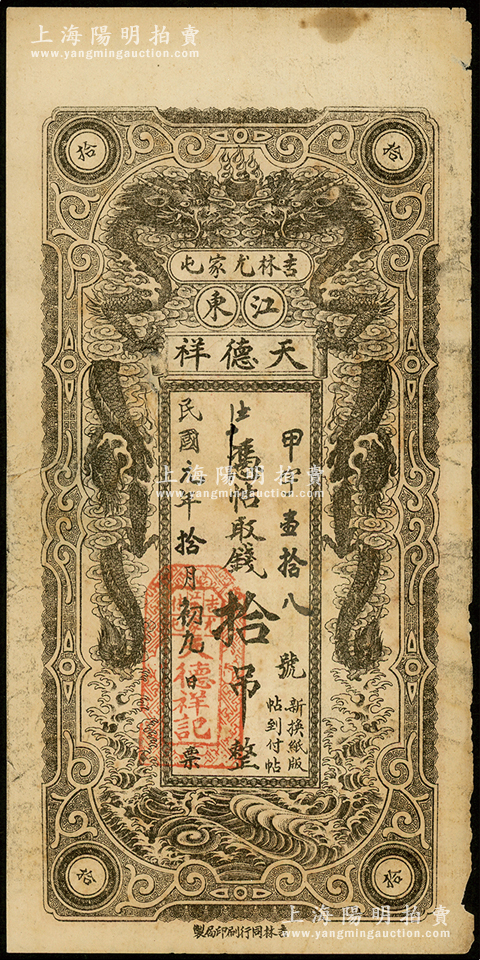 上海陽明拍賣
www.yangmingauction.com
拾
叁
吉林尤家屯
江東
天德祥
甲字壹拾八號
憑帖取錢拾吊整
民國元年拾月初九日票
新換紙版
帖到付帖
德祥記
上海陽明拍賣
www.yangmingauction.com
叁
拾
吉林同行刷印局製
上海陽明拍賣
www.yangmingauction.com